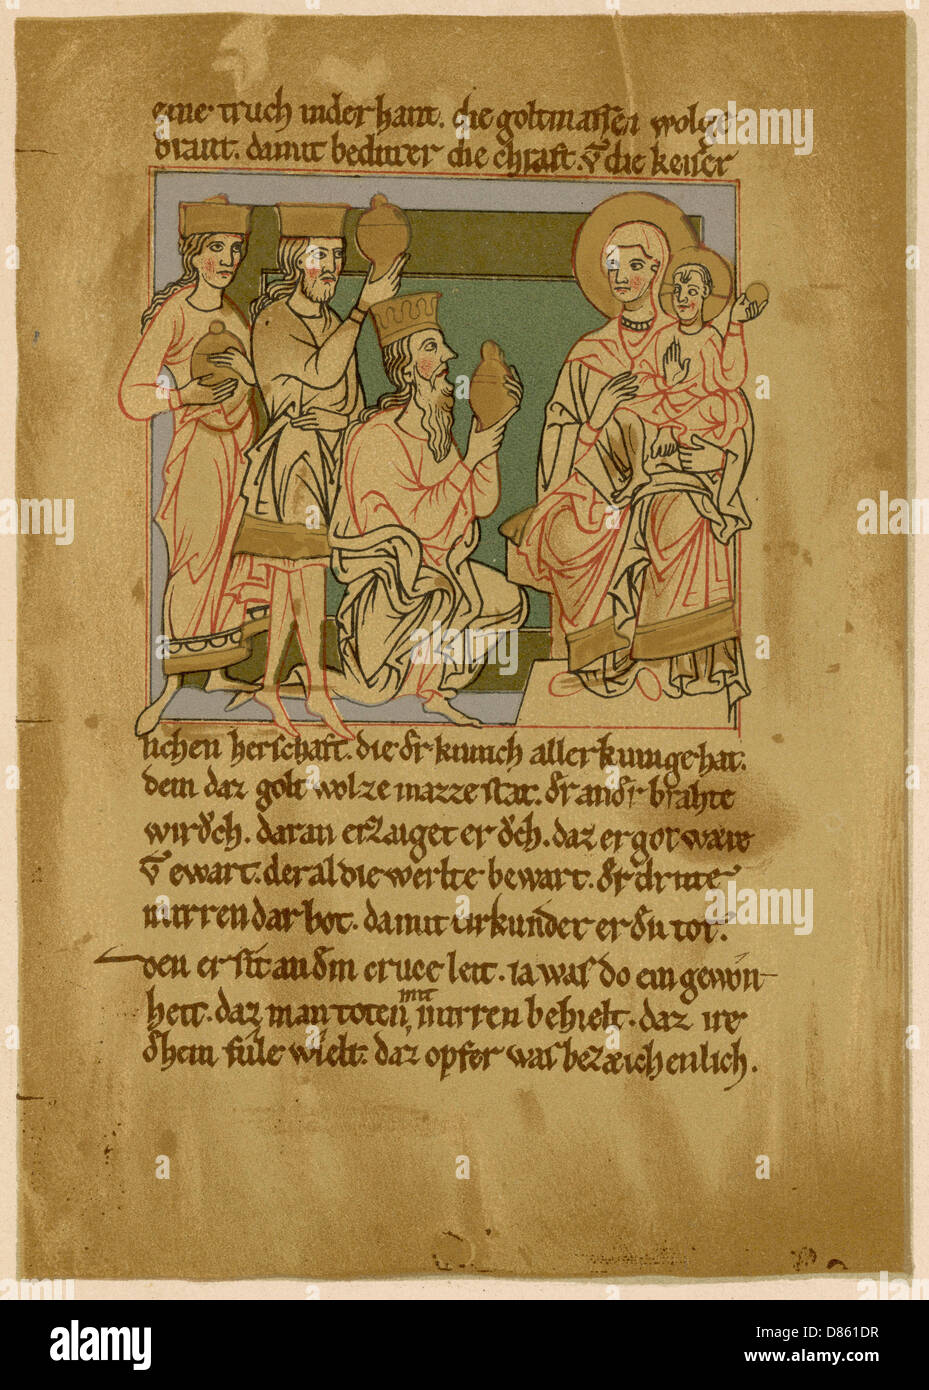 eine truch inder hant. die goltmassen wolge
braut. damit beduter die chraft. v̄ die keiser
lichen herschaft. die dˀr kunich aller kunige hat.
dem daz golt wol ze mazze stat. dˀr andˀr brahte
wirǒch. daran erzaiget er ǒch. daz er got wære
v̄ ewart. der al die werlte bewart. dˀr dritte
mirren dar bot. damit urkundet er den tot.
den er sit an dem cruce leit. ia was do ein gewon
heit. daz man toten mit mirren behielt. daz ire
dhein fule wielt. daz opfer was bezæichenlich.
alamy
Image ID: D861DR
www.alamy.com